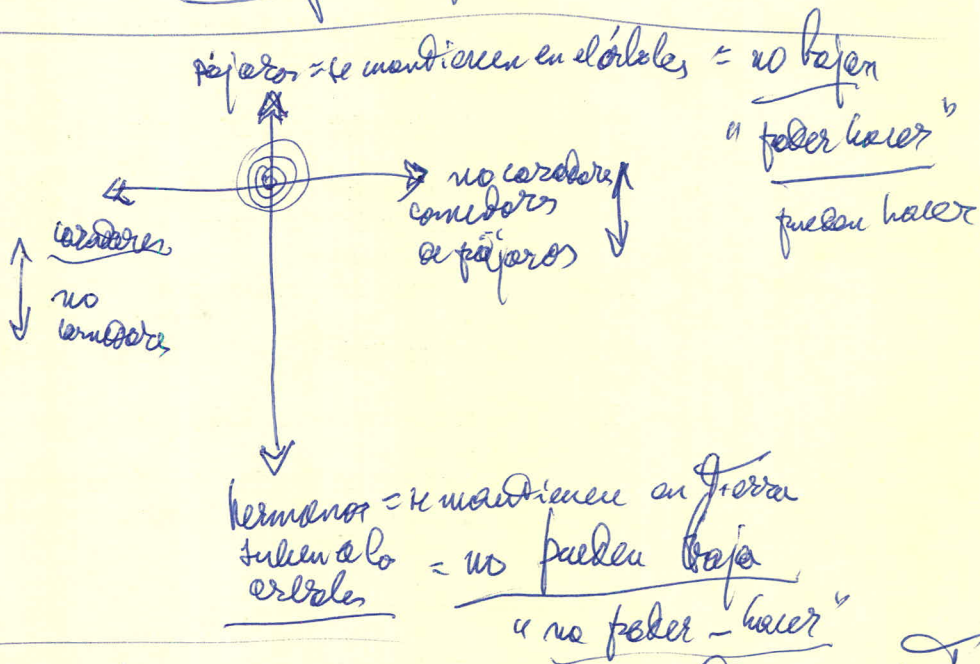 pájaros = se mantienen en el árboles = no bajan
"poder hacer"
pueden hacer
no cazadores
comedores
de pájaros
cazadores
no
comedores
hermanos = se mantienen en Tierra
suben a lo
arboles
= no pueden baja
"no poder - hacer"